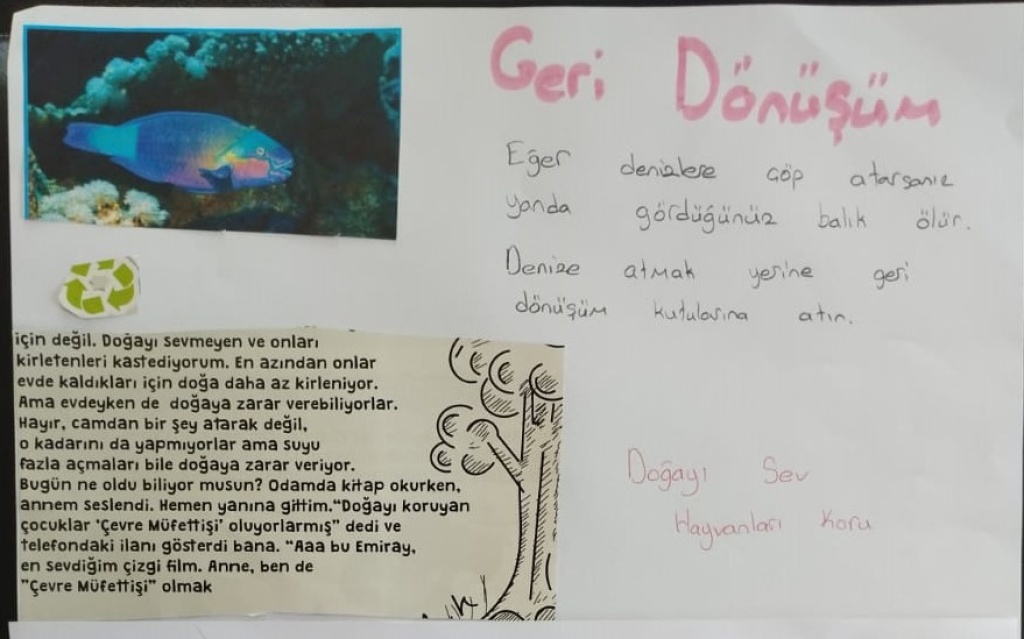 Geri Dönüşüm
Eğer denizlere çöp atarsanız
yanda gördüğünüz balık ölür.
Denize atmak yerine geri
dönüşüm kutularına atın.
için değil. Doğayı sevmeyen ve onları
kirletenleri kastediyorum. En azından onlar
evde kaldıkları için doğa daha az kirleniyor.
Ama evdeyken de doğaya zarar verebiliyorlar.
Hayır, camdan bir şey atarak değil,
o kadarını da yapmıyorlar ama suyu
fazla açmaları bile doğaya zarar veriyor.
Bugün ne oldu biliyor musun? Odamda kitap okurken,
annem seslendi. Hemen yanına gittim.“Doğayı koruyan
çocuklar ‘Çevre Müfettişi’ oluyorlarmış” dedi ve
telefondaki ilanı gösterdi bana. “Aaa bu Emiray,
en sevdiğim çizgi film. Anne, ben de
”Çevre Müfettişi” olmak
Doğayı Sev
Hayvanları Koru